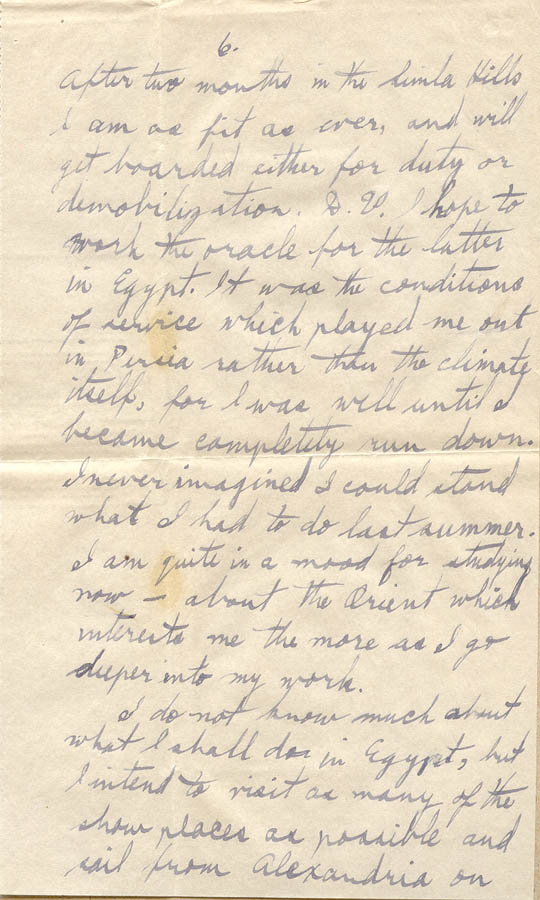 6.
After two months in the Simla Hills
I am as fit as ever, and will
get boarded either for duty or
demobilization. D.V. I hope to
work the oracle for the latter
in Egypt. It was the conditions
of service which played me out
in Persia rather than the climate
itself, for I was well until I
became completely run down.
I never imagined I could stand
what I had to do last summer.
I am quite in a mood for studying
now — about the Orient which
interests me the more as I go
deeper into my work.
I do not know much about
what I shall do in Egypt, but
I intend to visit as many of the
show places as possible and
sail from Alexandria on